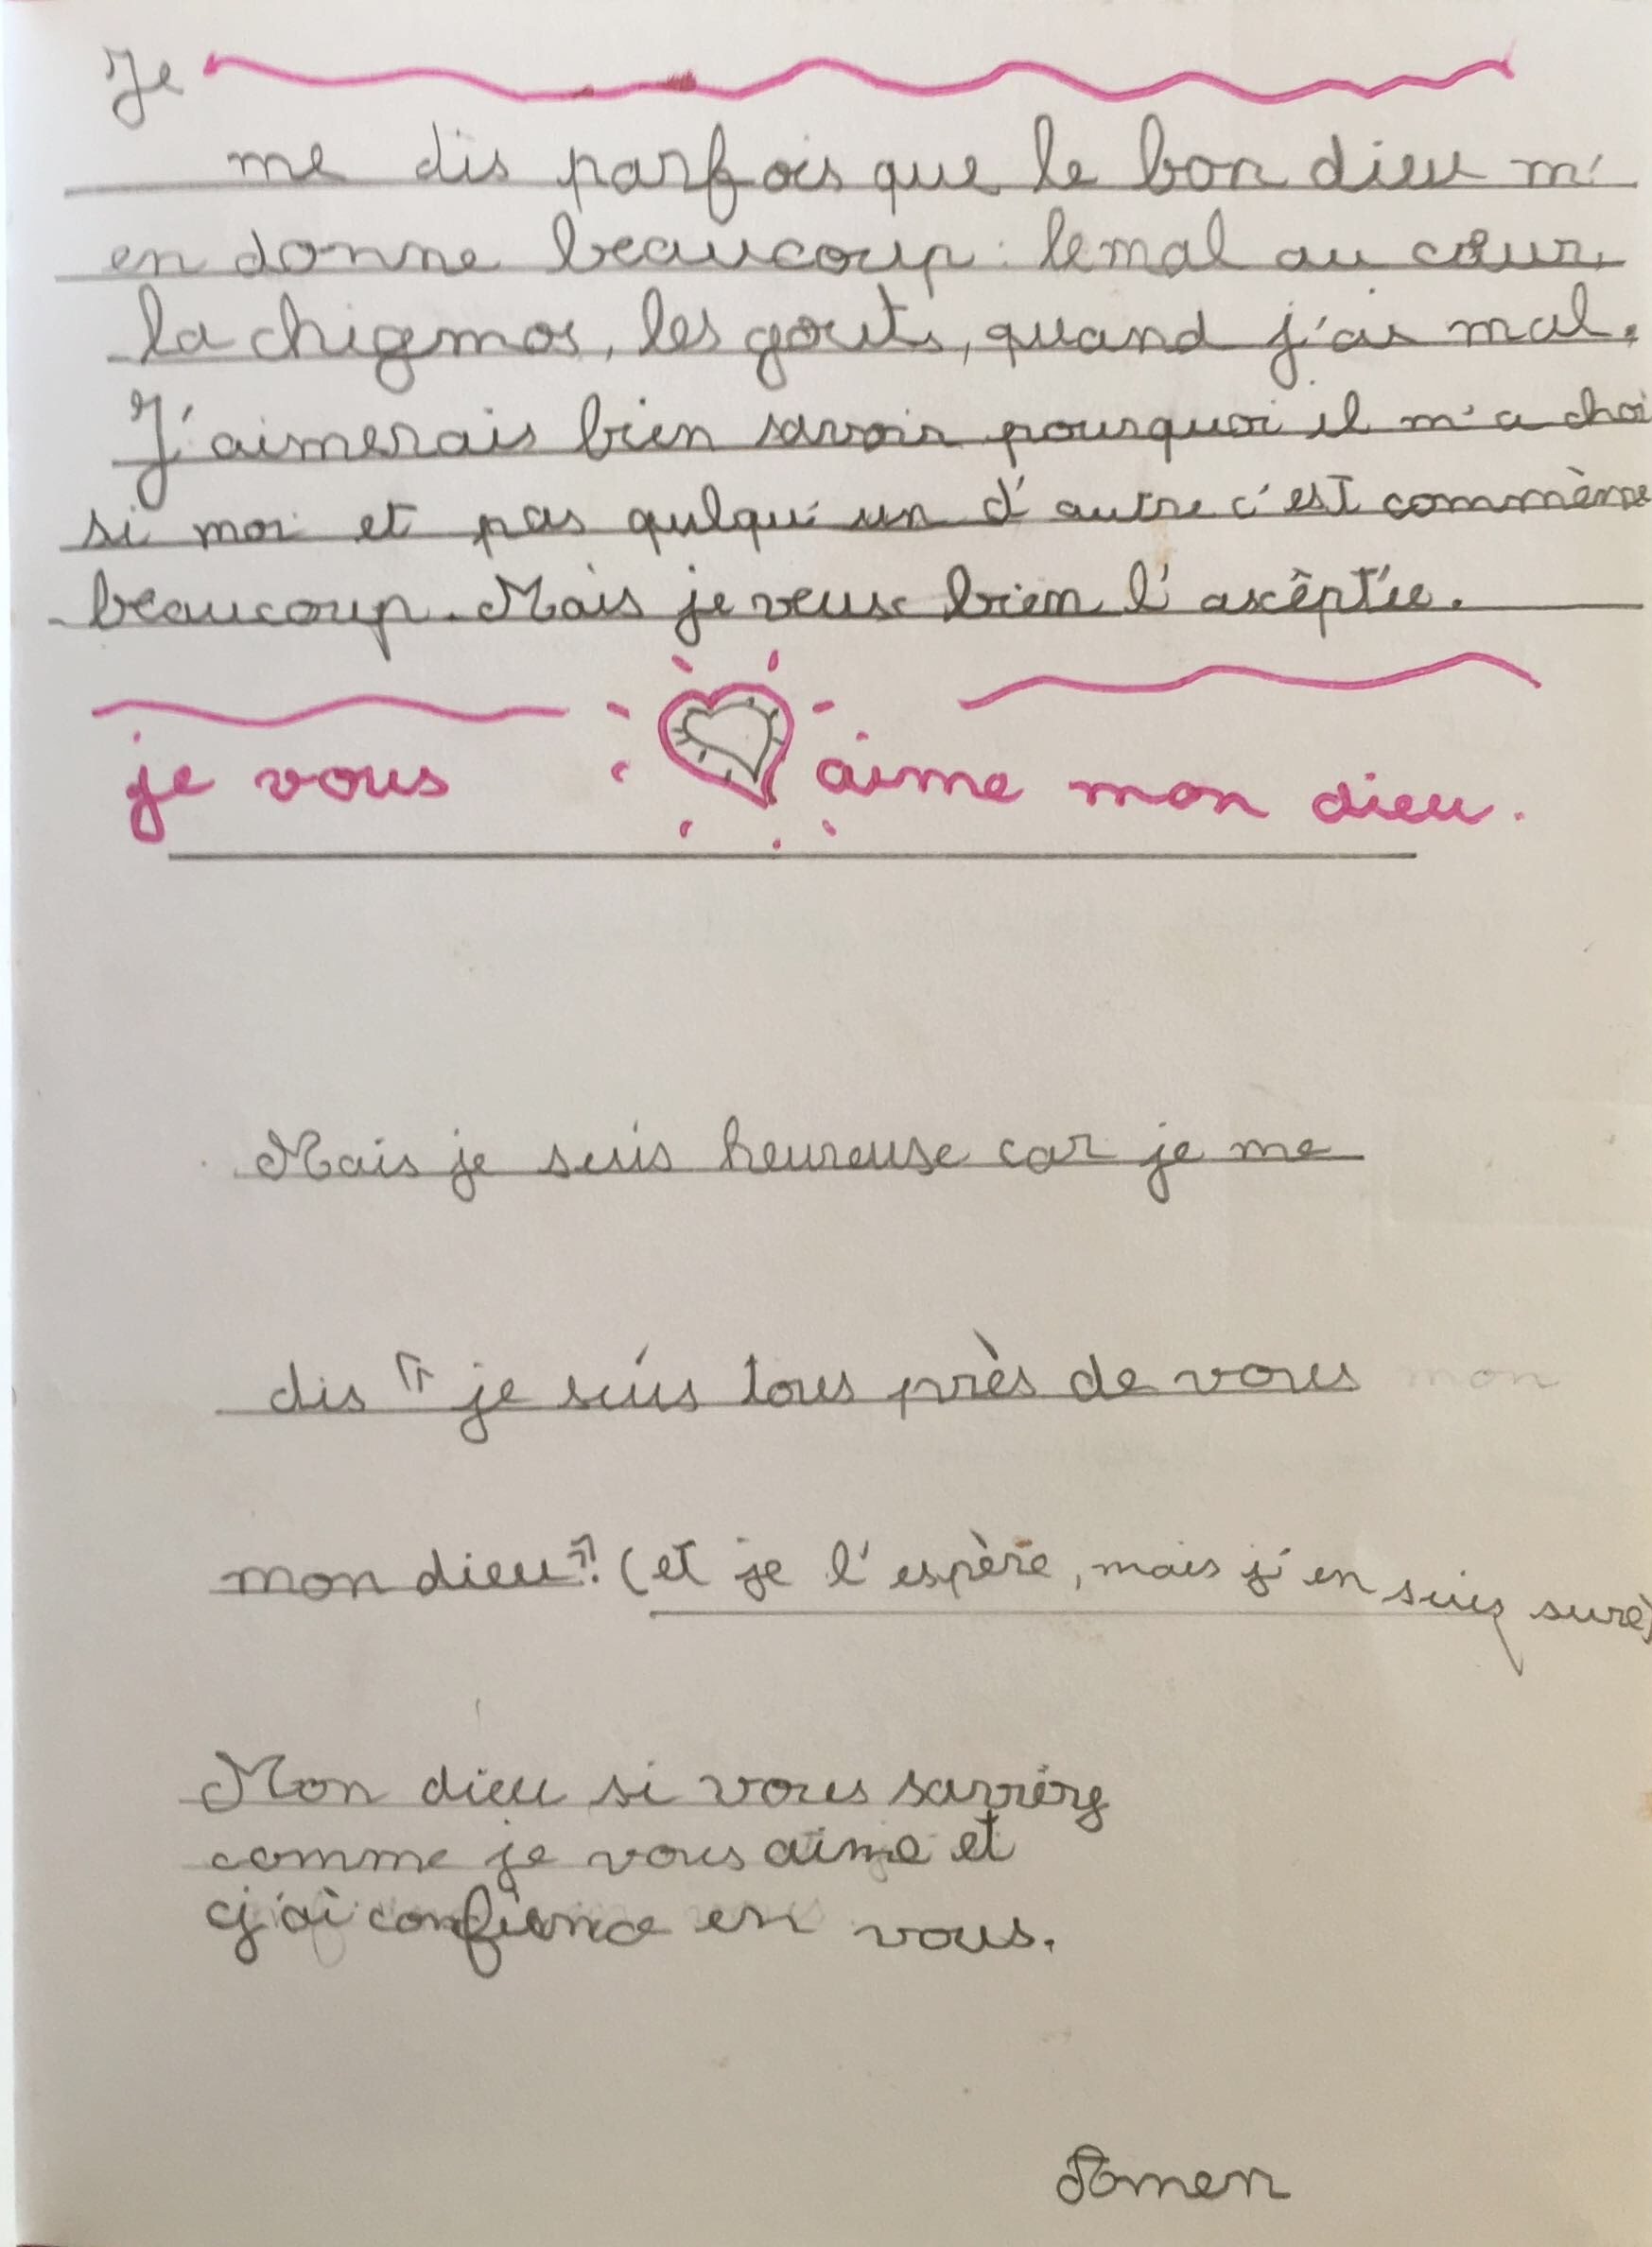 Je
me dis parfois que le bon dieu m'
en donne beaucoup : le mal au cœur,
la chigemos, les gouts, quand j'ai mal.
J'aimerais bien savoir pourquoi il m'a choi
si moi et pas qulqu'un d'autre c'est commème
beaucoup. Mais je veux bien l'ascêptée.
je vous aime mon dieu.
Mais je suis heureuse car je me
dis " je suis tous près de vous mon
mon dieu". (et je l'espère, mais j'en suis sure)
Mon dieu si vous savviéz
comme je vous aime et
j'ai confience en vous.
Amen